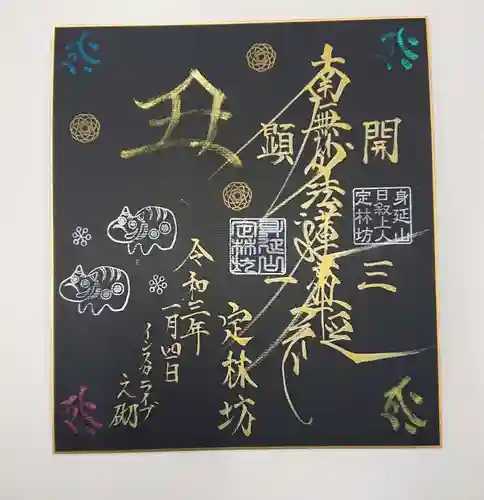 開三
身延山
日叙上人
定林坊
南無妙法蓮華経
顕一
身延山
定林坊
丑
定林坊
令和三年
一月四日
インスタライブ
之砌